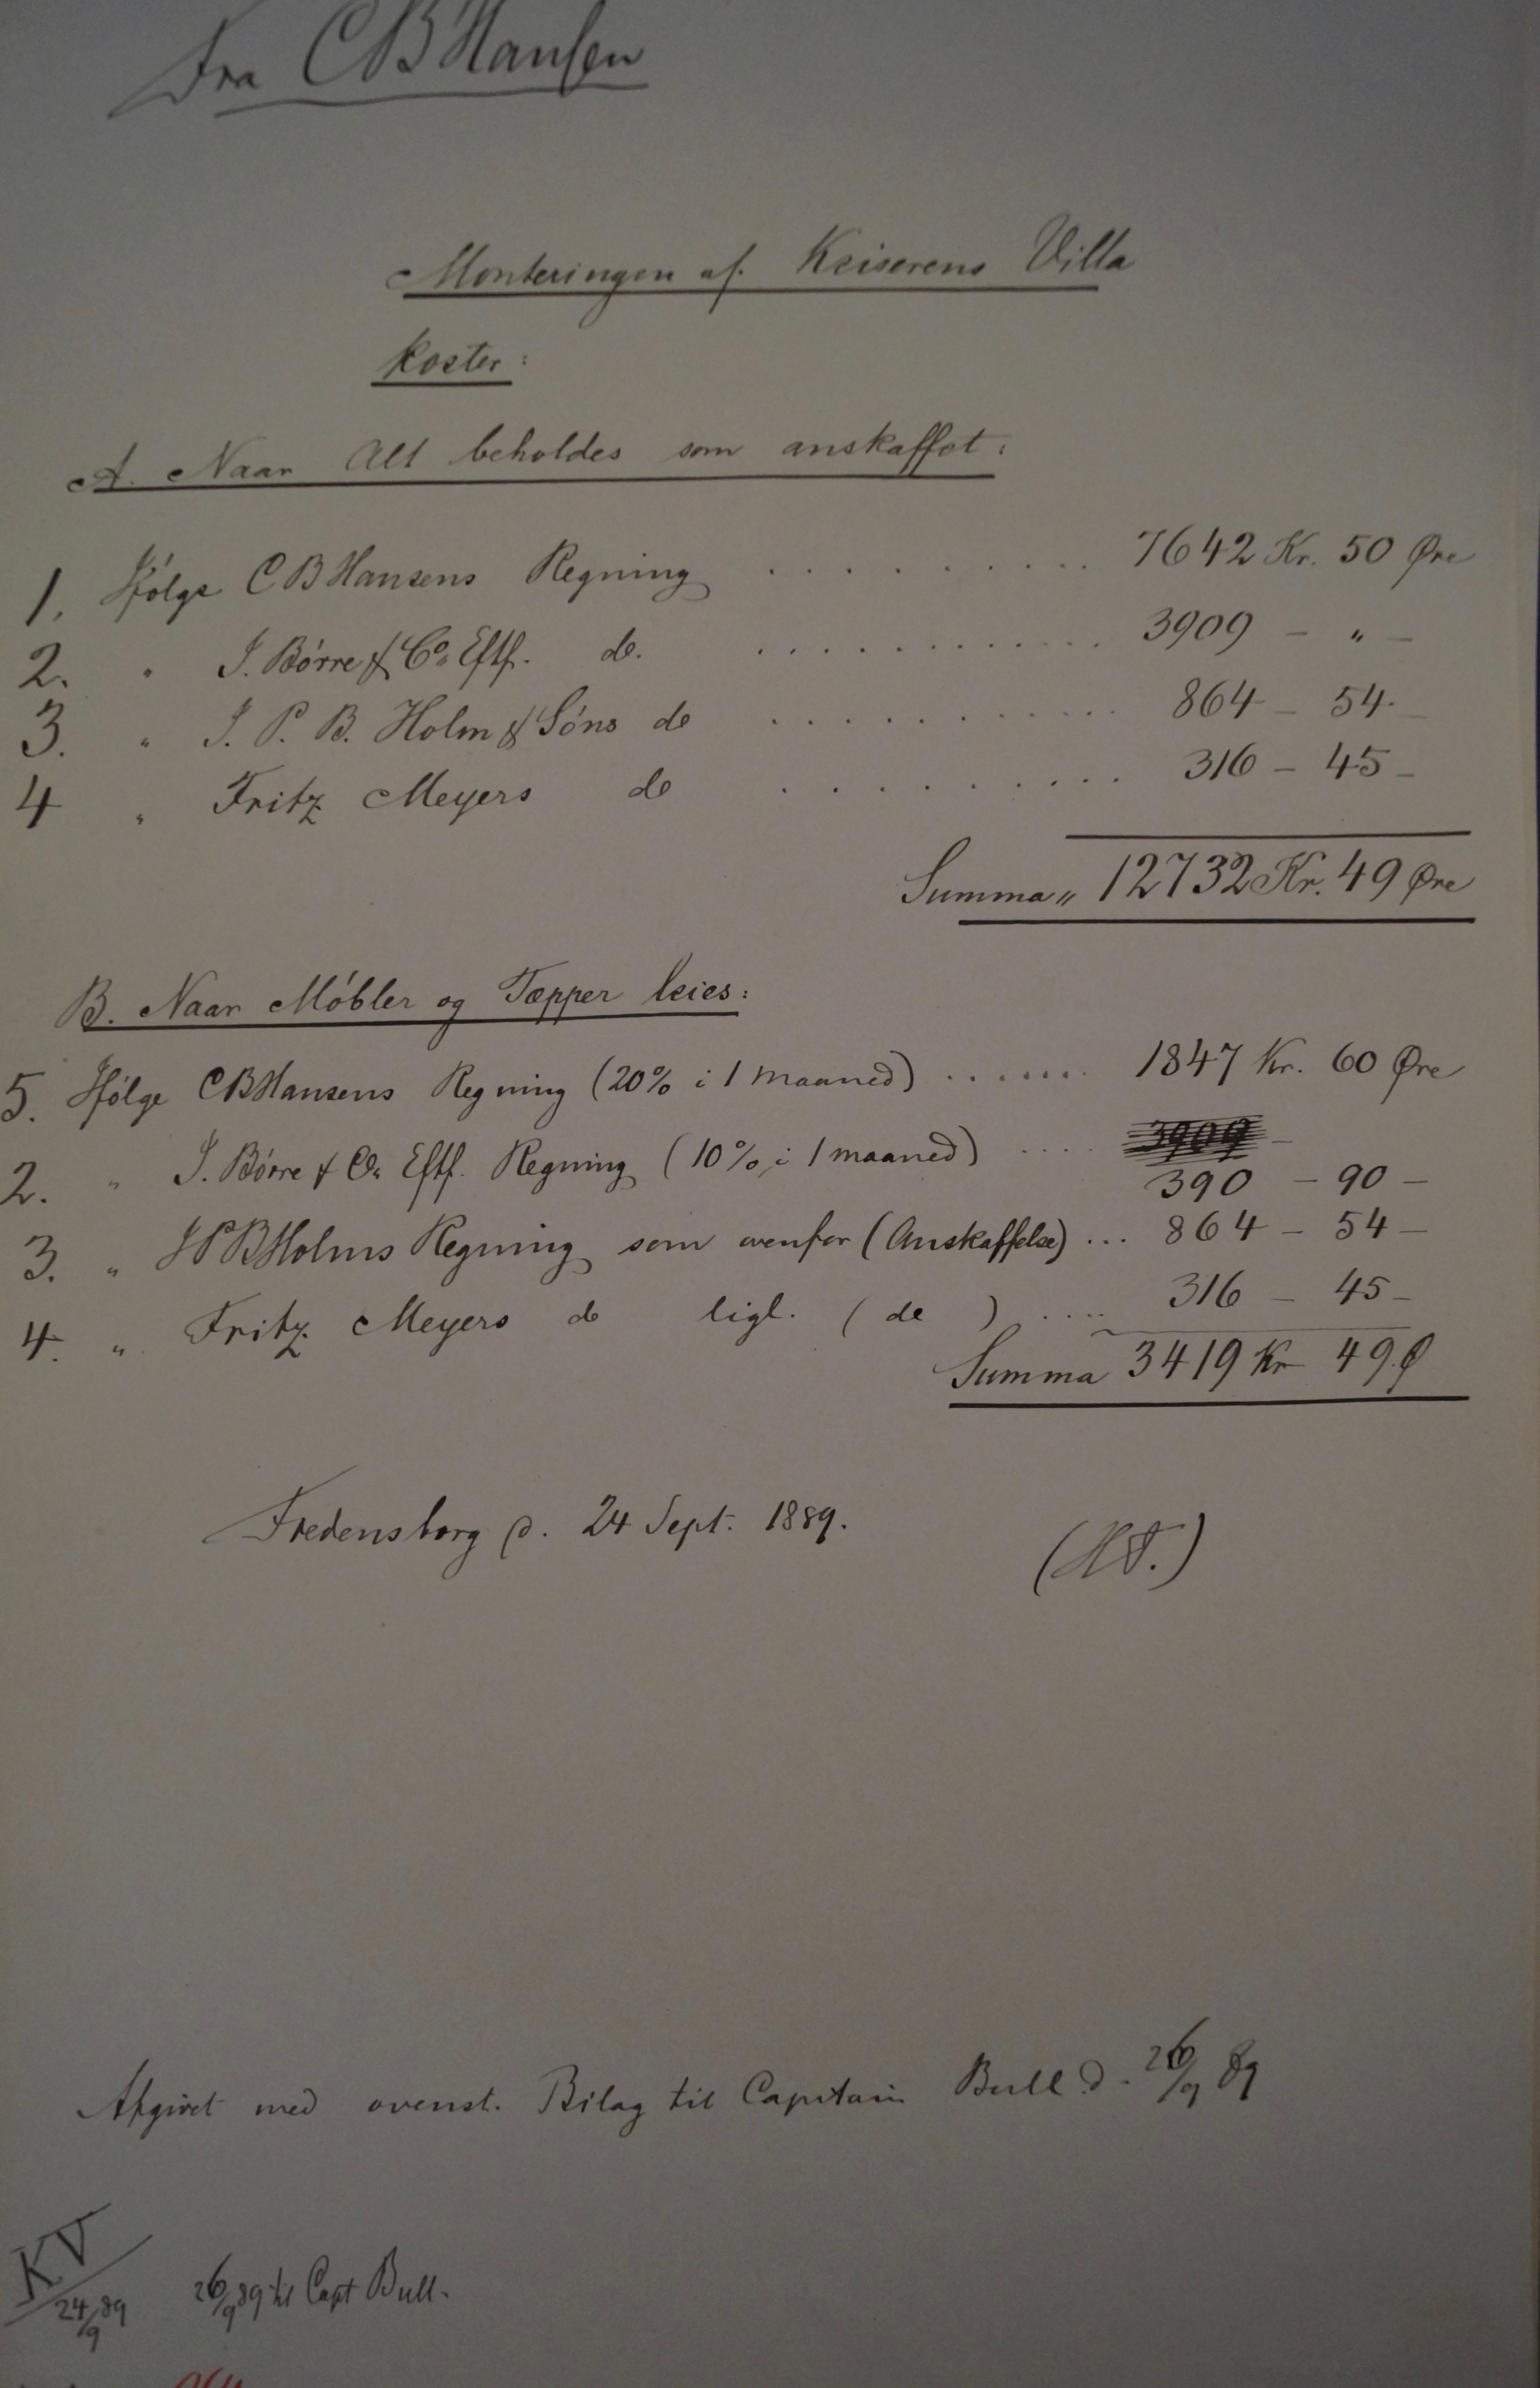 Fra CBHansen
Monteringen af. Keiserens Villa
koster:
A. Naar Alt beholdes som anskaffet:
1. Ifølge CBHansens Regning .......... 7642 Kr. 50 Øre
2. " J. Børre & Co. Eftf. do. ............ 3909 - " -
3. " J. P. B. Holm & Søns do ............ 864 - 54 -
4 " Fritz Meyers do .......... 316 - 45 -
Summa " 12732 Kr. 49 Øre
B. Naar Møbler og Tæpper leies:
5. Ifølge CBHansens Regning (20% i 1 maaned) ....... 1847 Kr. 60 Øre
3909 -
2. " J. Børre & Co. Eftf. Regning (10% i 1 maaned) .... 390 - 90 -
3. " JPBHolms Regning som ovenfor (Anskaffelse) ... 864 - 54 -
4. " Fritz Meyers do ligl. (do) .... 316 - 45 -
Summa 3419 Kr 49 Ø
Fredensborg d. 24 Sept. 1889.
Afgivet med ovenst. Bilag til Capitain Bull d. 26/9 89
KV
24/9 89
26/9 89 til Capt Bull.